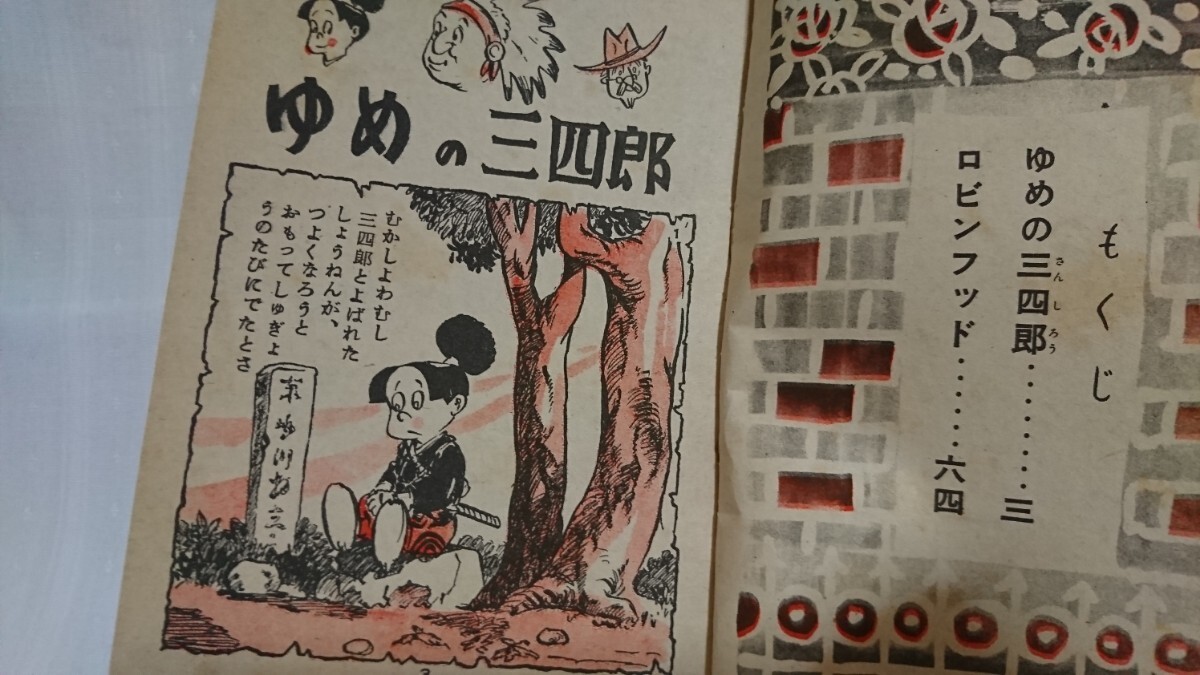 もくじ
ゆめの三四郎・・・・・・・・・三
さんしろう
ロビンフッド・・・・・・・六四
ゆめの三四郎
むかしよわむし
三四郎とよばれた
しょうねんが、
つよくなろうと
おもってしゅぎょ
うのたびにでたとさ
3